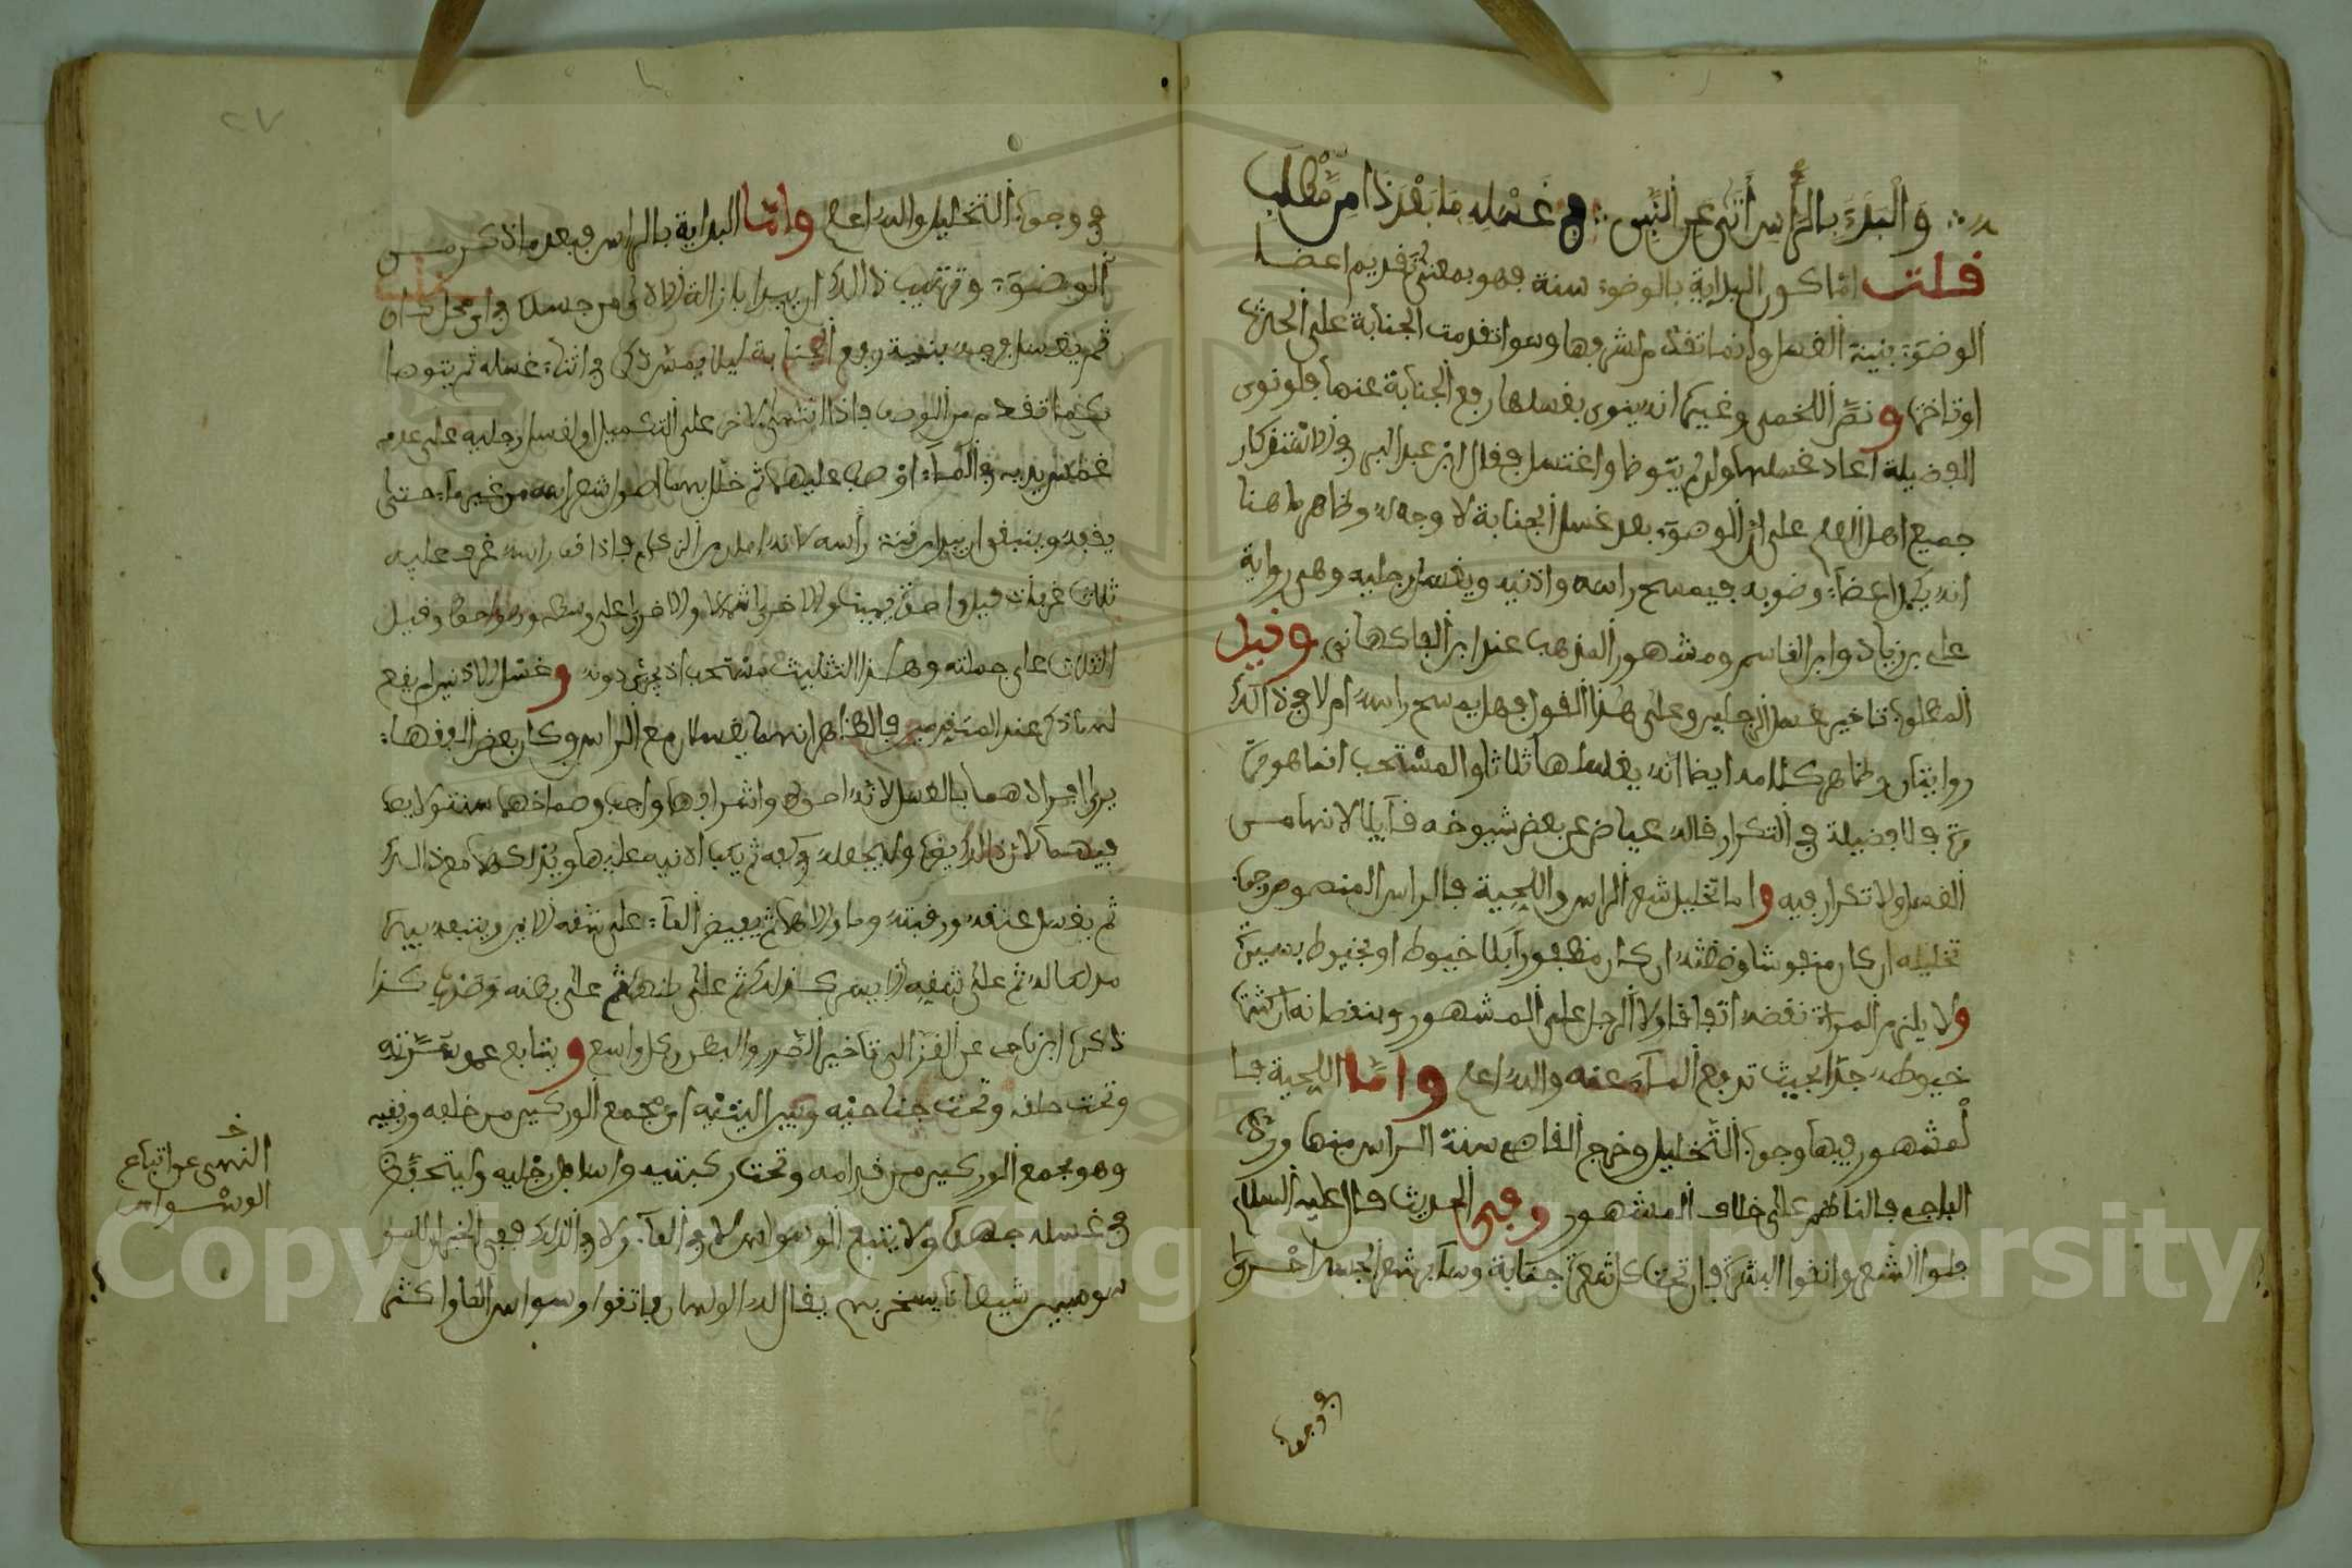 والبدء بالرأس أتى عن النبي في غسله ما بعد ذا من مطلب
قلت اما كون البداية بالوضوء سنة فهو بمعنى تقديم اعضا
الوضوء بنية الغسل وانما تقدم لشرفها وسوا تقدمت الجنابة على الحدث
او تاخر ونص اللخمي وغيره انه ينوي بغسلها رفع الجنابة عنها فلو نوى
الفضيلة اعاد غسلها ولو لم يتوضا واغتسل فقال ابن عبد البر في الاستذكار
جميع اهل العلم على ان الوضوء بعد غسل الجنابة لا وجه له وظاهر ما هنا
انه يكمل اعضاء وضوئه فيمسح راسه واذنيه ويغسل رجليه وهي رواية
علي بن زياد وابن القاسم ومشهور المذهب عند ابن الفاكهاني وقيل
المطلوب تاخير غسل الرجلين وعلى هذا القول فهل يمسح راسه ام لا في ذلك
روايتان وظاهر كلامه ايضا انه يغسلها ثلاثا والمستحب انما هو مرة
مرة فلا فضيلة في التكرار قاله عياض عن بعض شيوخه قائلا لانها من
الغسل ولا تكرار فيه واما تخليل شعر الراس واللحية فالراس المنصوص وجوب
تخليله ان كان منفوشا وضغثه ان كان مظفورا بلا خيوط او بخيوط يسيرة
ولا يلزم المراة نقضه اتفاقا ولا الرجل على المشهور وينقضانه ان كثرت
خيوطه جدا بحيث تدفع الماء عنه والله اعلم واما اللحية فا
لمشهور فيها وجوب التخليل وخرج القاضي سنة الراس منها ورده
الباجي فالناظم على خلاف المشهور وفي الحديث قال عليه السلام
خللوا الشعر وانقوا البشرة فان تحت كل شعرة جنابة وسائر شعر الجسد احرى
في وجوب
٢٧
في وجوب التخليل والله اعلم واما البداية بالراس فبعد ما ذكر من
الوضوء وترتيب ذلك ان يبدا بازالة الاذى من جسده في اي محل كان
ثم يغسل فرجه بنية رفع الجنابة ليلا يمس ذكره في اثناء غسله ثم يتوضا
كما تقدم من الوضوء فاذا انتهى الاخر على التكميل او لغسل رجليه على عدمه
غمس يديه في الماء او صب عليهما ثم خلل بهما اصول شعر راسه من غير ماء حتى
يفيد وينبغي ان يبدا من قنة راسه لانه امان من الزكام فاذا فعل راسه غرف عليه
ثلاث غرفات قيل واحدة يمينا والاخرى شمالا والاخرى على وسطه وقيل
الثلاث على جملته وهذا التثليث مستحب اذ يجزئ دونه وغسل الاذنين لم يقع
له ذكر عند المتقدمين فالظاهر انهما يغسلان مع الراس وكان بعض الفقهاء
يرى افرادهما بالغسل لانه احوط واشرافها واجب وصماخهما سنة ولا يصب
فيهما لان ذلك يضره وليجعله في كفه ثم يكب اذنيه عليها ويدلكهما مع ذلك
ثم يغسل عنقه ورقبته وما والاهما ثم يفيض الماء على شقه الايمن ويتبعه بيده
مدلكا له ثم على شقه الايسر كذلك ثم على ظهره ثم على بطنه وصدره كذا
ذكر ابن ناجي عن الغزالي تاخير الصدر والبطن وكل واسع ويتابع عمق سرته
وتحت حلقه وتحت جناحيه وبين اليتيه اي مجمع الوركين من خلفه ورفغيه
وهو مجمع الوركين من قدامه وتحت ركبتيه واسافل رجليه وليتحفظ
في غسله جهده ولا يتبع الوسواس لا في الماء ولا في الدلك ففي الخبر ان للو
ضوء شيطانا يسخر بهم يقال له الولهان فاتقوا وسواس الماء واكثر
النهي عن اتباع
الوسواس
Copyright © King Saud University